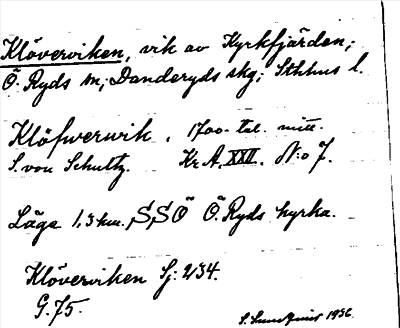 Klöverviken, vik av Kyrkfjärden;
Ö. Ryds sn; Danderyds skg; Sthlms l.
Klöfwerwik. 1700-tal. mitt.
S. von Schultz. Kr. A. XXII. N:o 7.
Läge 1,3 km. SSÖ Ö. Ryds kyrka.
Klöverviken Sj: 234.
G. 75.
1936.